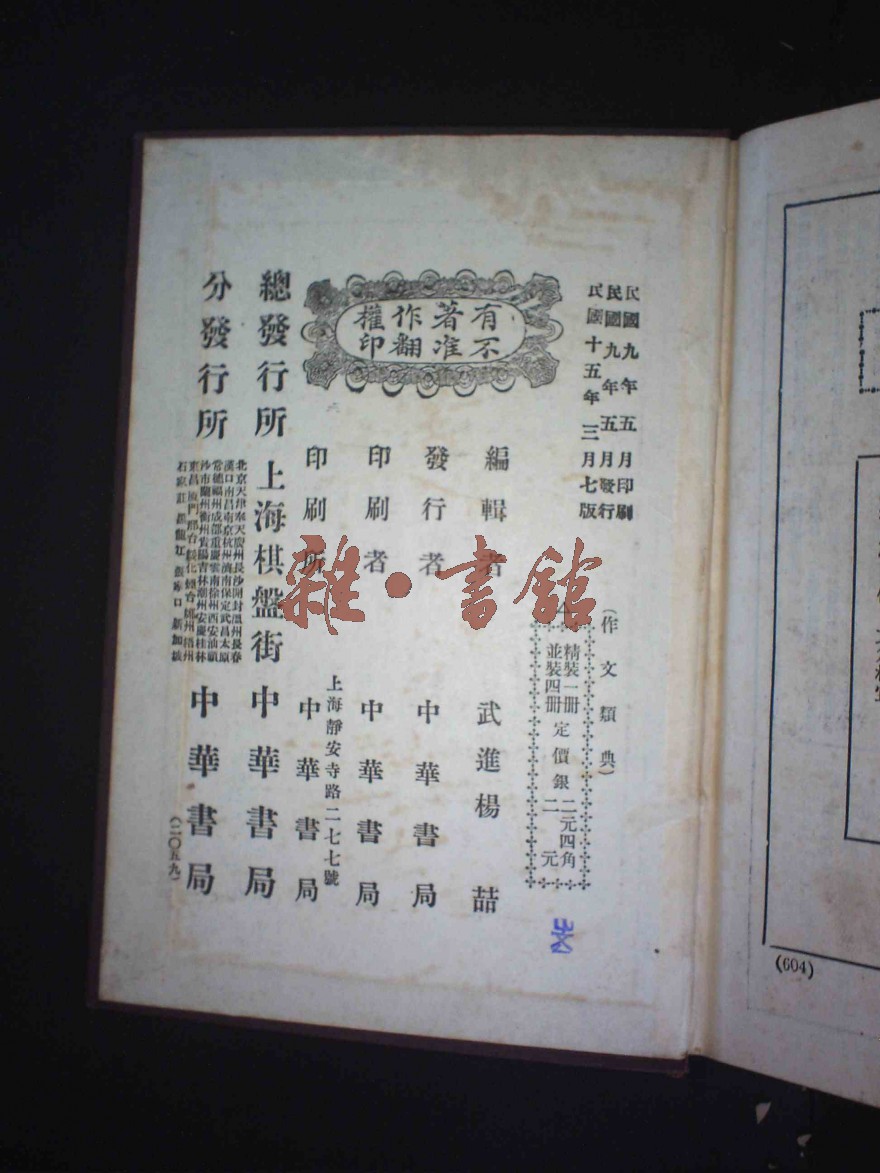 民國九年五月印刷
民國九年五月發行
民國十五年三月七版
(作文類典)
精裝一冊 定價銀 二元四角
並裝四冊 二元
有著作權
不准翻印
編輯者 武進楊喆
發行者 中華書局
印刷者 中華書局
上海靜安寺路二七七號
印刷所 中華書局
總發行所 上海棋盤街 中華書局
北京天津奉天廣州長沙開封溫州長春
漢口南昌南京杭州濟南保定武昌太原
常德福州成都重慶雲南徐州西安汕頭
沙市蘭州衢州貴陽吉林潮州安慶桂林
分發行所 中華書局
(二〇五九)
雜·書館
(604)